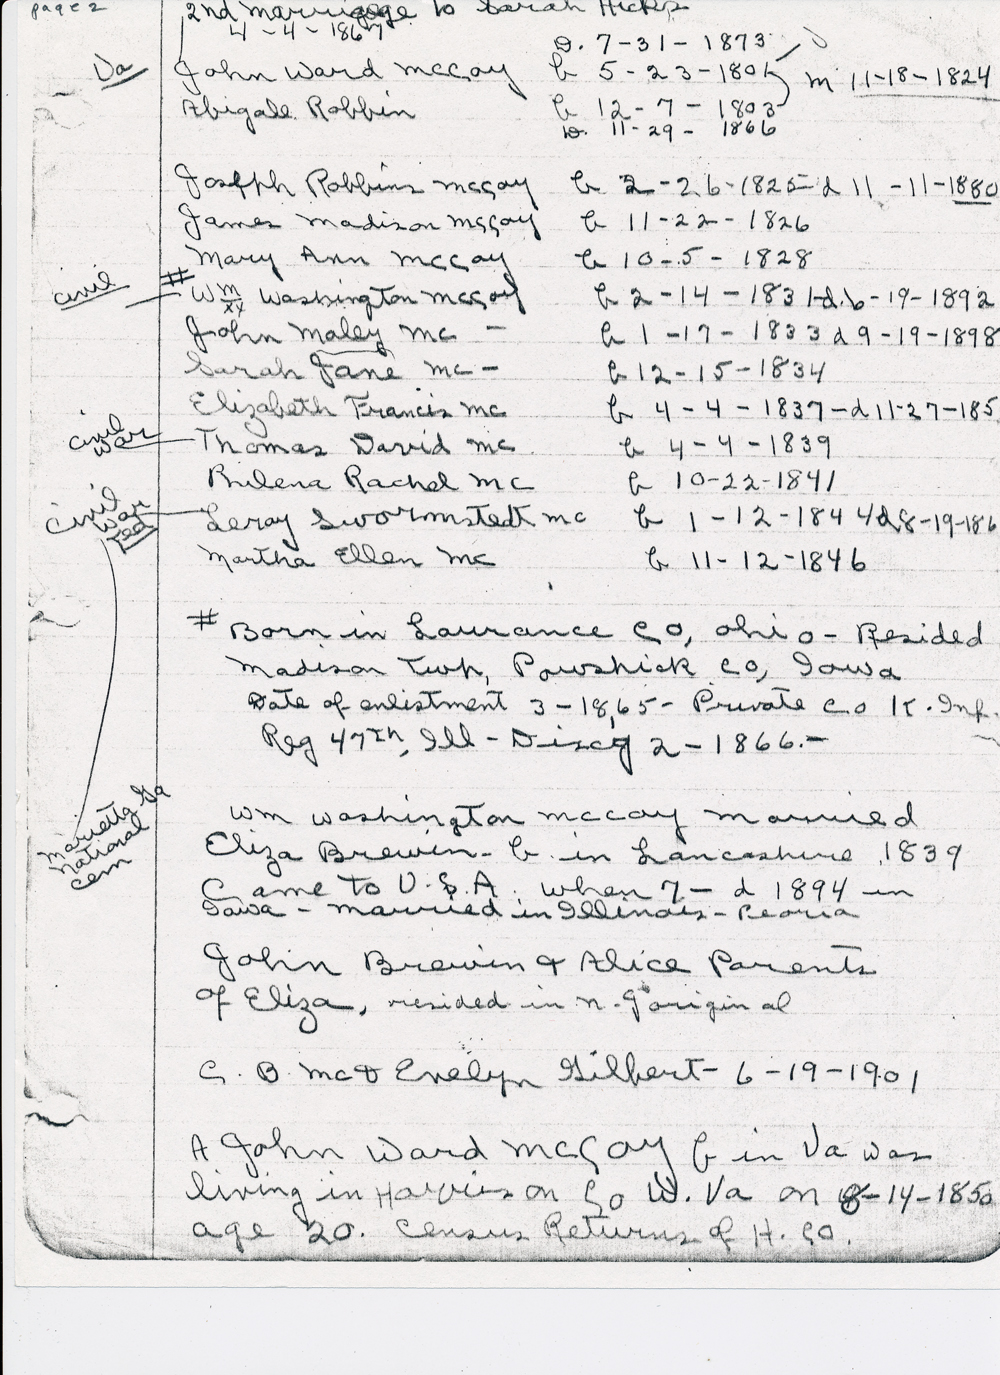 page 2
2nd marriage to Sarah Hicks
4-4-1867
D. 7-31-1873
Va John Ward McCoy b 5-23-1801 m 11-18-1824
Abigale Robbin b 12-7-1803
D. 11-29-1866
Joseph Robbins McCoy b 2-26-1825-d 11-11-1880
James Madison McCoy b 11-22-1826
Mary Ann McCoy b 10-5-1828
civil # Wm Washington McCoy b 2-14-1831-d.6-19-1892
xx
John Maley Mc - b 1-17-1833 d 9-19-1898
Sarah Jane Mc - b 12-15-1834
Elizabeth Francis Mc b 4-4-1837-d 11-27-185
civil war Thomas David Mc b 4-4-1839
Rachel Mc b 10-22-1841
civil war Leroy Swormstedt Mc b 1-12-1844 d 8-19-186
Martha Ellen Mc b 11-12-1846
# Born in Laurance Co, Ohio - Resided
Madison Twp, Powshick Co, Iowa
Date of enlistment 3-18,65- Private Co K. Inf.
Reg 47th, Ill - Discg 2-1866.-
Marietta Ga
National
Cem
Wm Washington McCoy married
Eliza Brewin - b. in Lancashire 1839
Came to U.S.A. when 7 - d 1894 in
Iowa - married in Illinois - Peoria
John Brewin & Alice Parents
of Eliza, resided in N. J original
C. B. Mc & Evelyn Gilbert - 6-19-1901
A John Ward McCoy b in Va was
living in Harrison Co W. Va on 8-14-1850
age 20. Census Returns of H. Co.